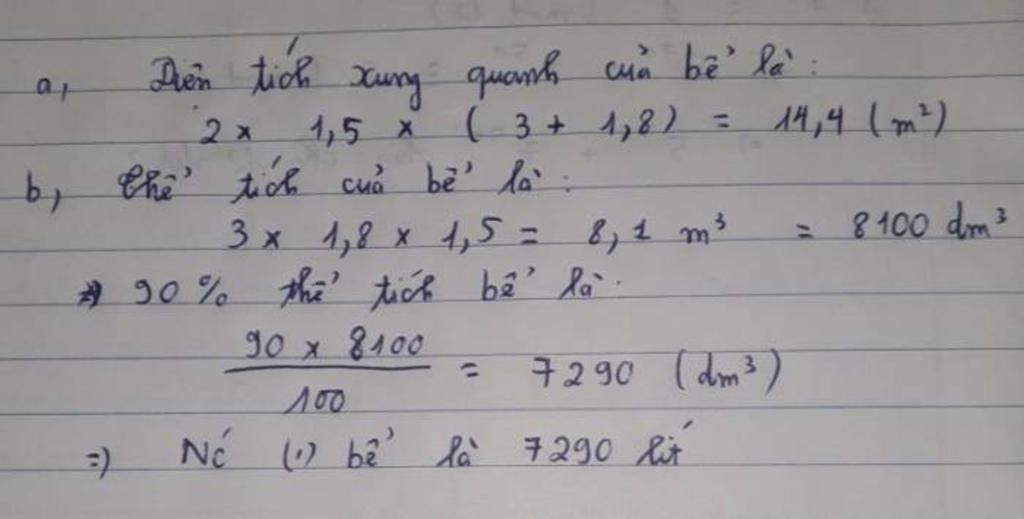 a, Diện tích xung quanh của bể là:
2 x 1,5 x ( 3 + 1,8) = 14,4 (m²)
b, Thể tích của bể là:
3 x 1,8 x 1,5 = 8,1 m³ = 8100 dm³
=> 90% thể tích bể là:
90 x 8100 / 100 = 7290 (dm³)
=) Nć (.) bể là 7290 lít